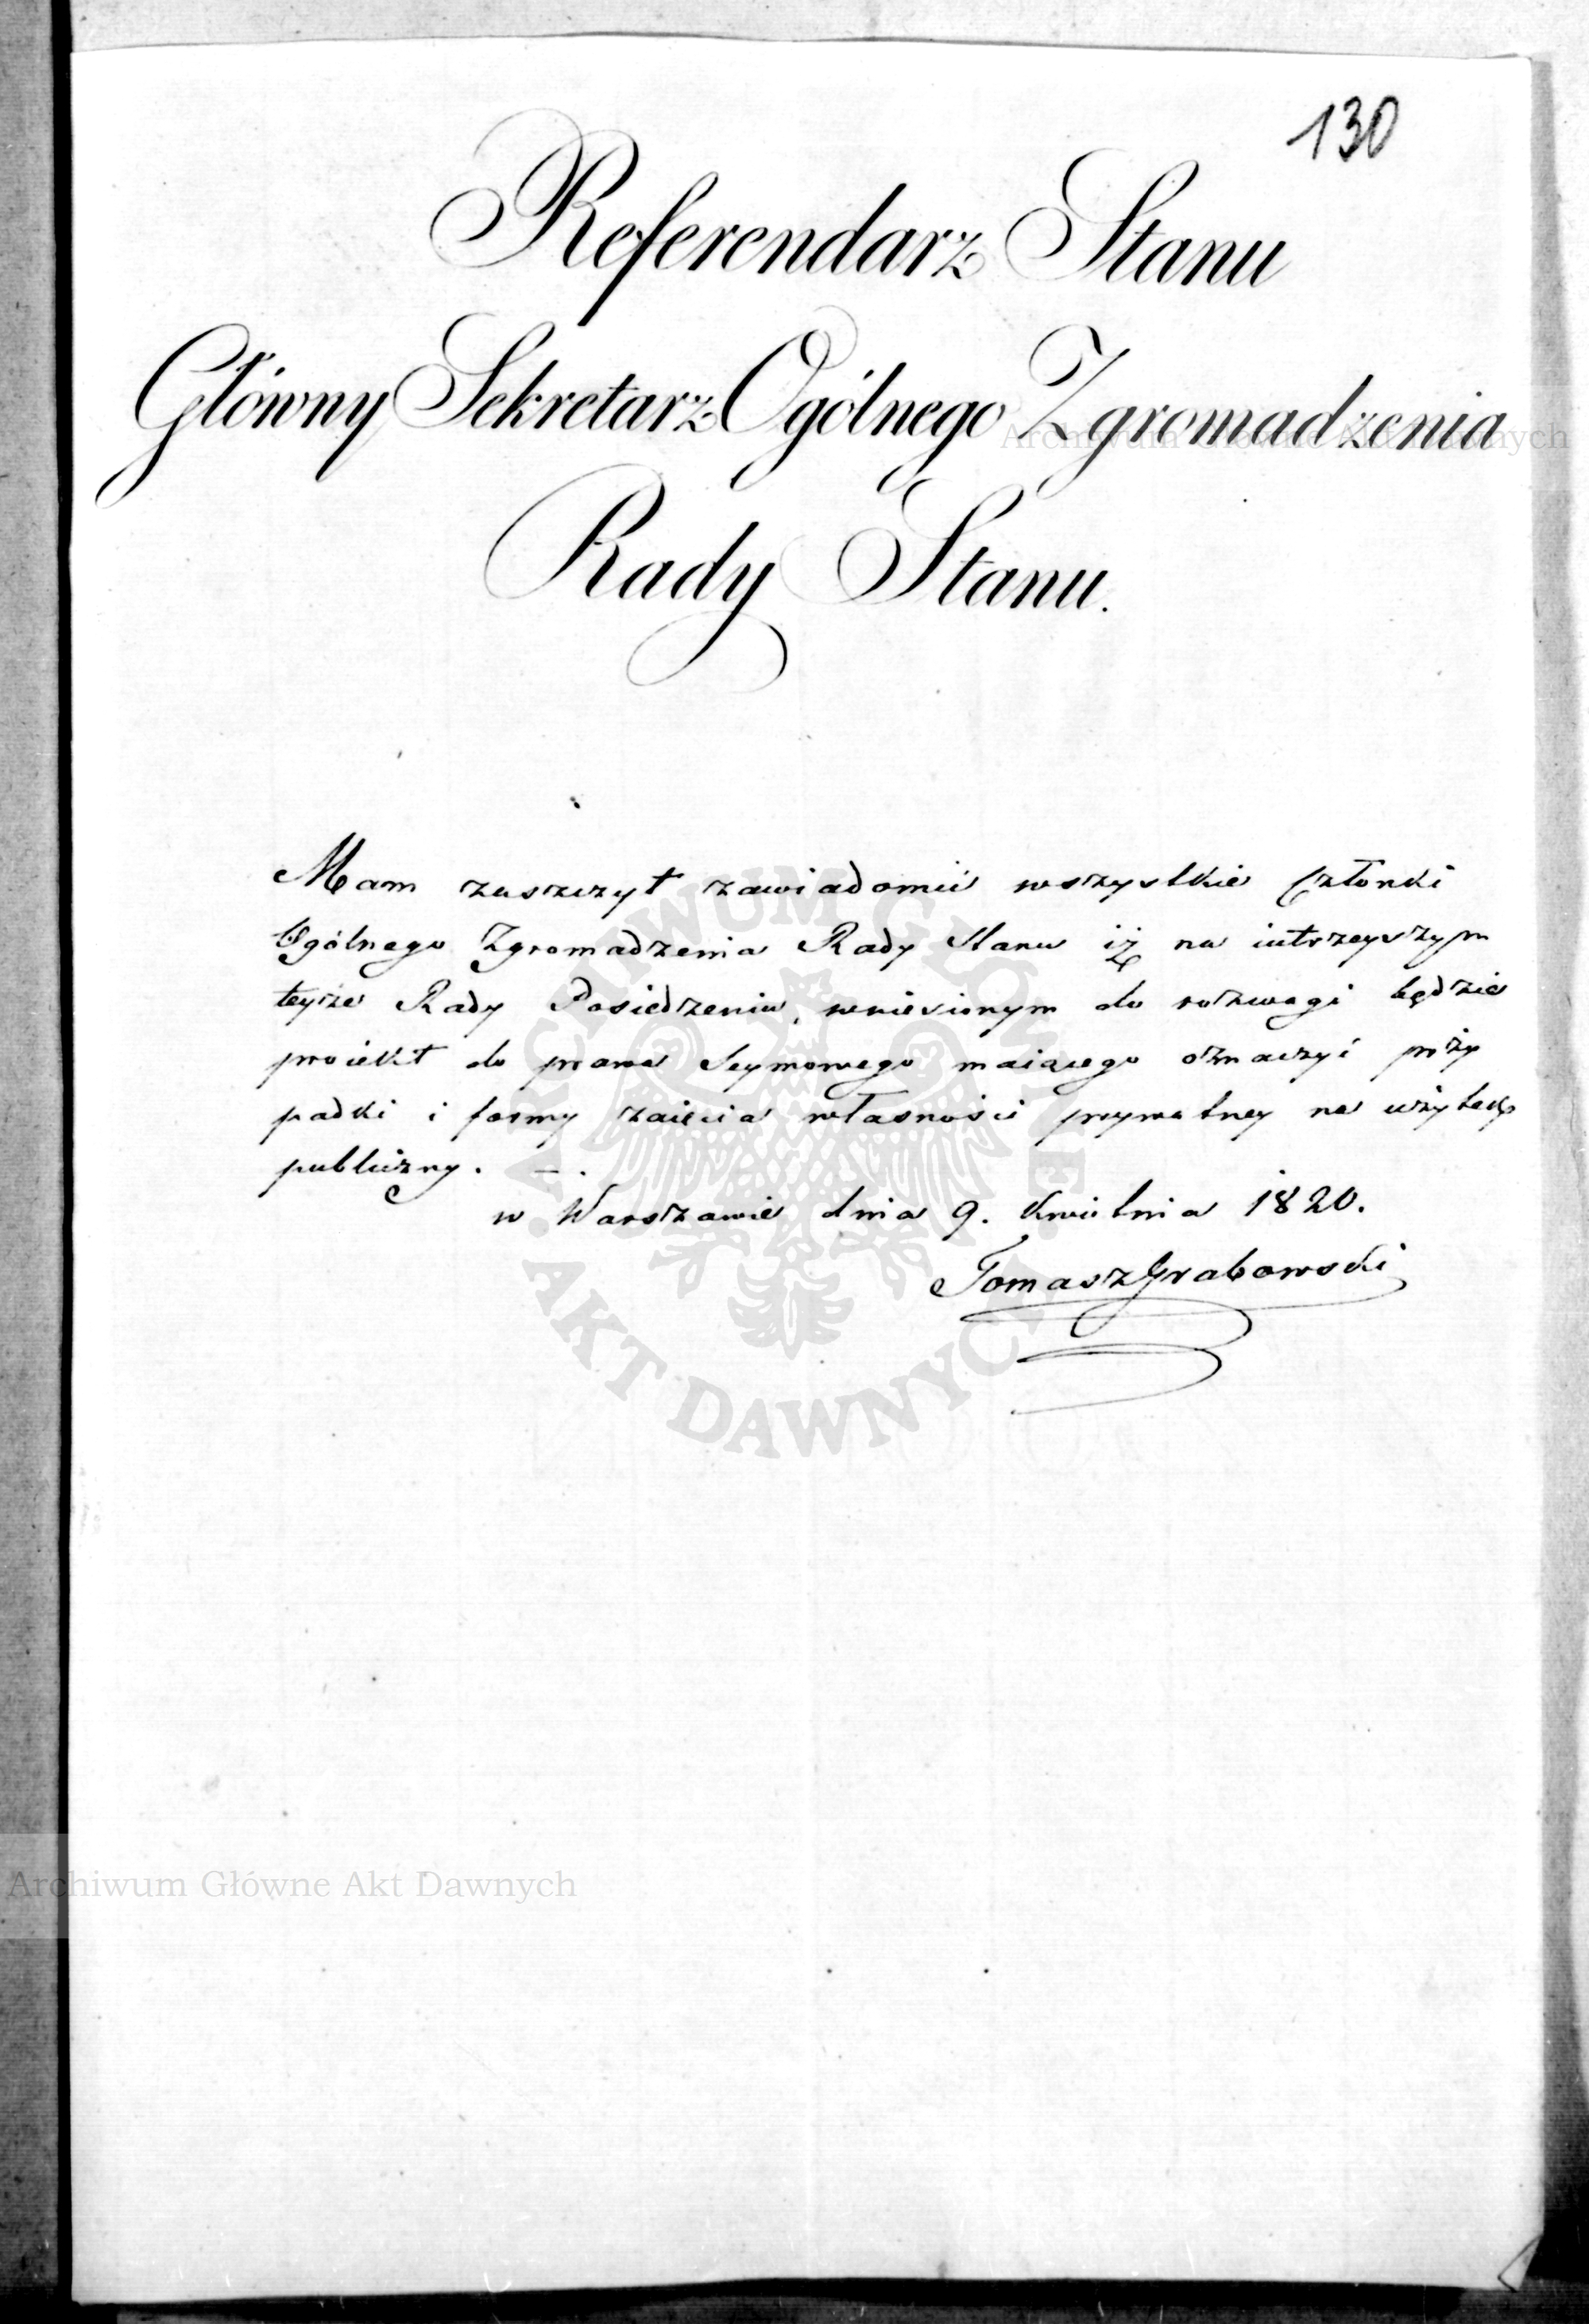 130
Referendarz Stanu
Główny Sekretarz Ogólnego Zgromadzenia
Rady Stanu.
Mam zaszczyt zawiadomić wszystkie Członki
Ogólnego Zgromadzenia Rady Stanu iż na iutrzeyszym
teyże Rady Posiedzeniu, wniesionym do rozwagi będzie
proiekt do prawa Seymowego maiącego oznaczyć przy
padki i formy zaięcia własności prywatney na użytek
publiczny. — .
w Warszawie dnia 9. Kwietnia 1820.
Tomasz Grabowski
Archiwum Główne Akt Dawnych
ARCHIWUM GŁÓWNE
AKT DAWNYCH
Archiwum Główne Akt Dawnych